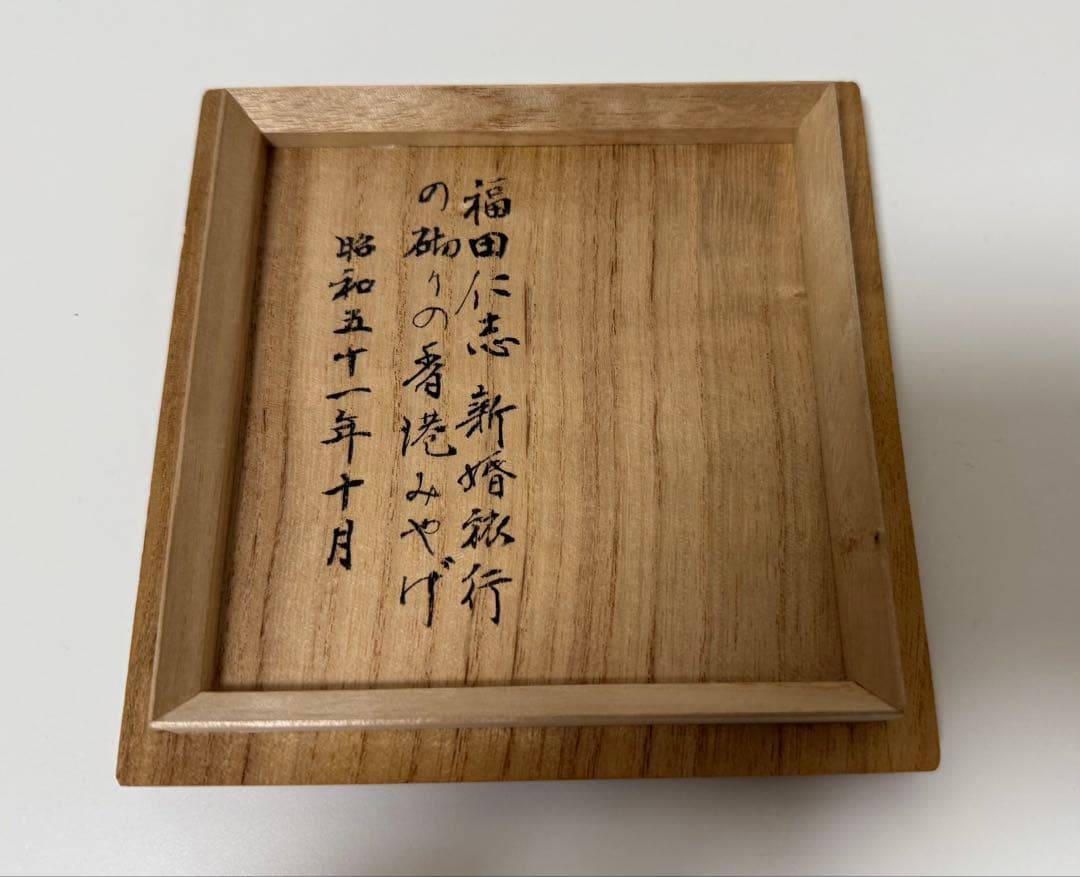 福田仁志 新婚旅行
の砌りの香港みやげ
昭和五十一年十月